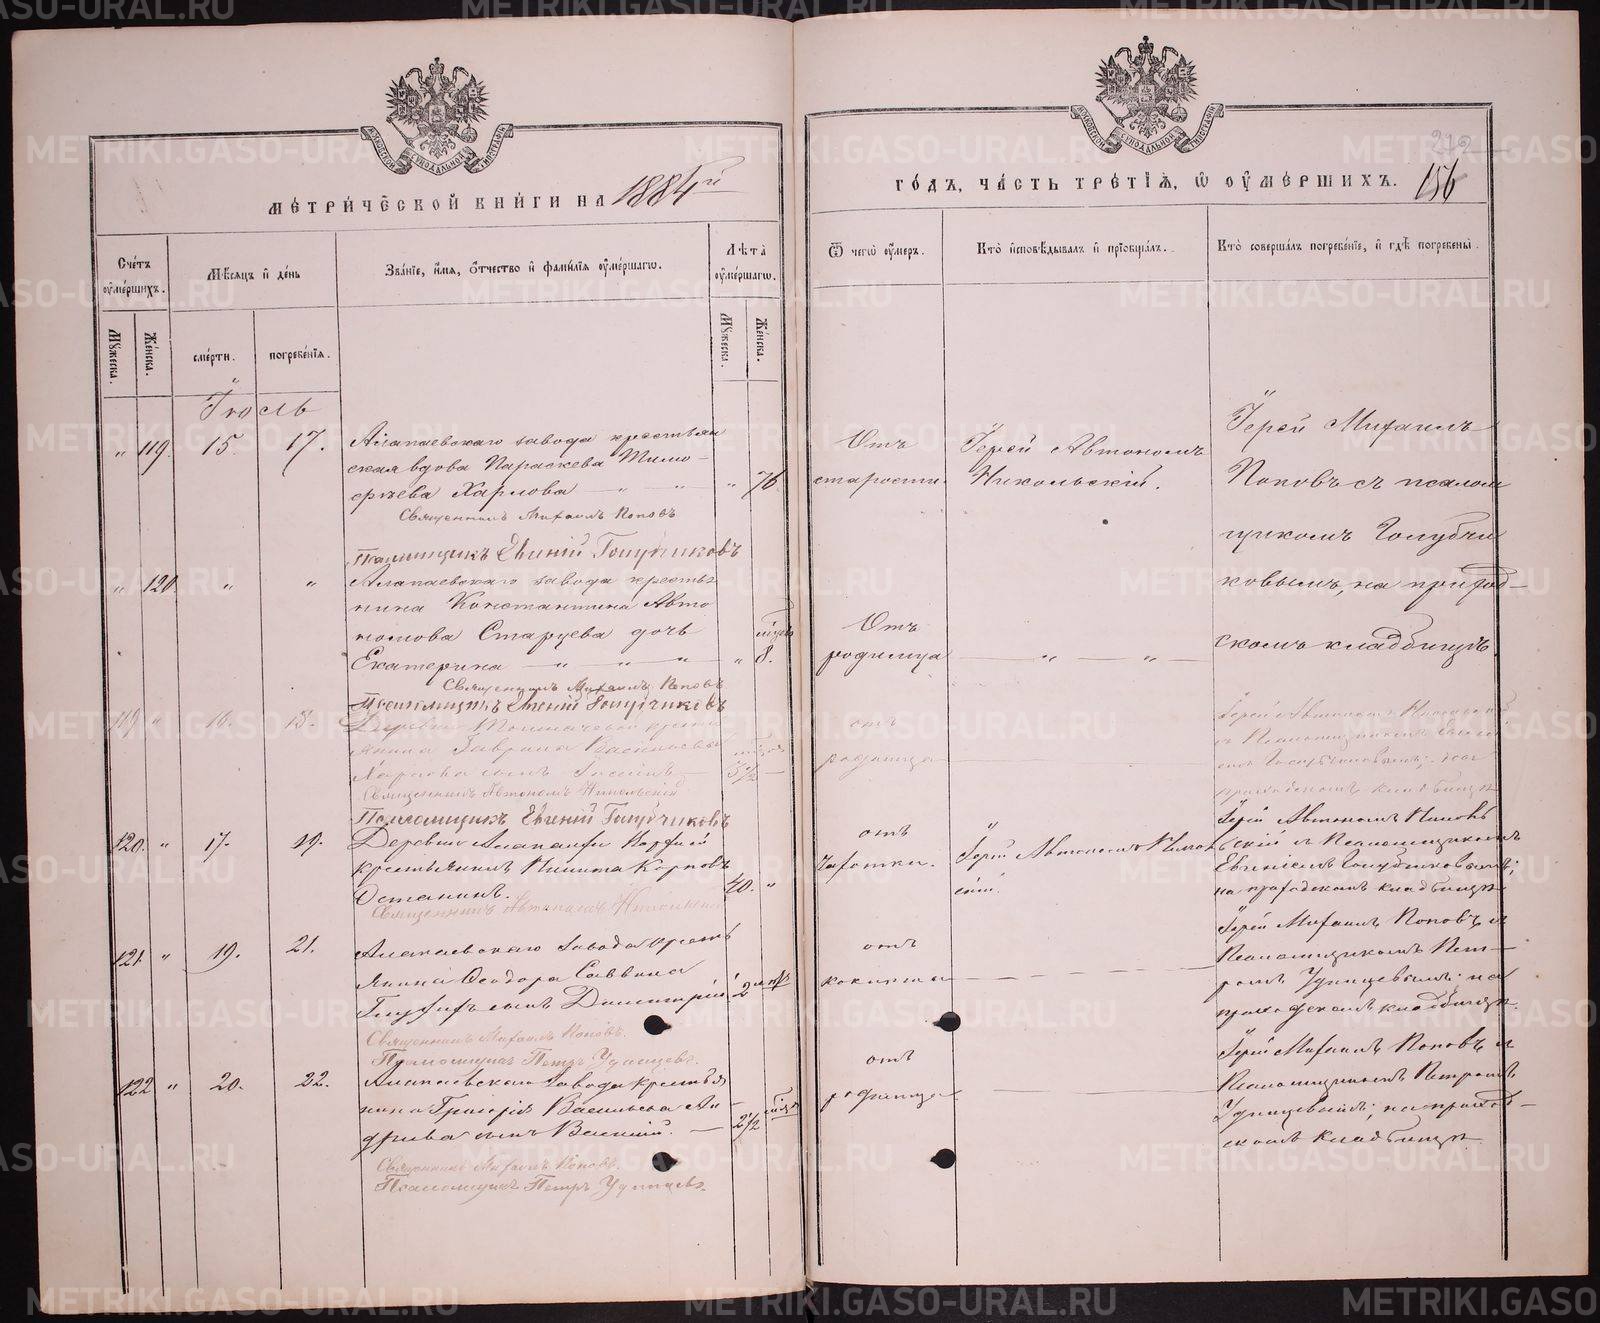 МЕТРИ́ЧЕСКОЙ КНИ́ГИ НА 1884й
Сче́тъ ᲂу҆ме́ршихъ.
Мꙋ́жеска.
Же́нска.
Мѣ́сяцъ и҆ де́нь
сме́рти.
погребе́нїѧ.
Зва́нїе, и҆́мѧ, ѻ҆́тчество и҆ фами́лїѧ ᲂу҆ме́ршагѡ.
Лѣ̀та̀ ᲂу҆ме́ршагѡ.
Мꙋ́жеска.
Же́нска.
Іюль
" 119. 15 17.
Алапаевскаго завода крестьян
ская вдова Параскева Тимо-
феева Харлова — " — " — " 76
Священникъ Михаилъ Поповъ
Псаломщикъ Евгений Голубчиковъ
" 120 " "
Алапаевскаго завода кресть
нина Константина Авто
номова Старцева дочь
Екатерина — " " " — " 8.
Священникъ Михаилъ Поповъ
Псаломщикъ Евгений Голубчиковъ
119 " 16. 18.
Деревни
янина Гаврила Васильева
Харлова сынъ 3½
Священникъ Автономъ Никольский
Псаломщикъ Евгений Голубчиковъ
120. " 17. 19.
Деревни Алапаихи
крестьянинъ Никита Карповъ
Останинъ. 40. "
Священникъ Автономъ Никольский
121. " 19. 21.
Алапаевскаго завода кресть
янина Ѳеодора Саввина
сынъ Димитрий 2
Священникъ Михаилъ Поповъ.
Псаломщикъ Петръ Удинцевъ.
122 " 20. 22.
Алапаевскаго завода крестья
нина Григория Васильева Ан-
сынъ Василий. — 2½
Священникъ Михаилъ Поповъ.
Псаломщикъ Петръ Удинцевъ.
МОСКОВСКОЙ СѴНОДАЛЬНОЙ ТИПОГРАФІИ
272
ГО́ДЪ, ЧА́СТЬ ТРЕ́ТІѦ, Ѡ҆ ОУ҆МЕ́РШИХЪ. 156
Ѿ чегѡ̀ ᲂу҆́меръ.
Кто̀ и҆сповѣ́дывалъ и҆ прїѡбща́лъ.
Кто̀ соверша́лъ погребе́нїе, и҆ гдѣ̀ погребены̀.
Отъ
старости.
Іерей Автономъ
Никольский.
Іерей Михаилъ
Поповъ съ псалом
щикомъ Голубчи
ковымъ, на приход-
скомъ кладбищѣ.
Отъ
родимца — " — " —
отъ
родимца
Іерей Автономъ Никольский
съ Псаломщикомъ
Голубчиковымъ; на
приходскомъ кладбищѣ
отъ
чахотки.
Іерей Автономъ Николь
ский.
Іерей Автономъ Николь
ский и Псаломщикомъ
Евгениемъ Голубчиковымъ;
на приходскомъ кладбищѣ
отъ
Іерей Михаилъ Поповъ и
Псаломщикомъ Пет-
ромъ Удинцевымъ; на
приходскомъ кладбищѣ.
отъ
родимца
Іерей Михаилъ Поповъ и
Псаломщикомъ Петромъ
Удинцевымъ; на приход-
скомъ кладбищѣ.
METRIKI.GASO-URAL.RU